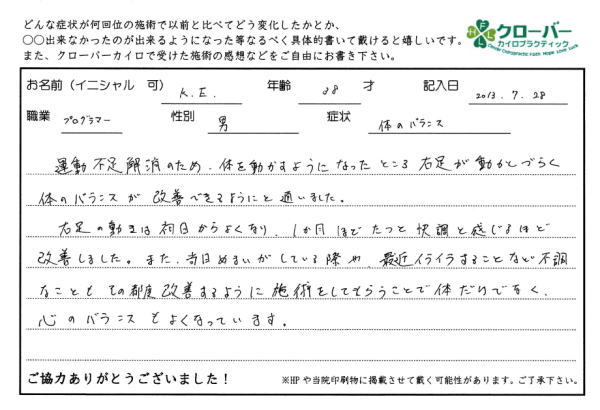 どんな症状が何回位の施術で以前と比べてどう変化したかとか、
〇〇出来なかったのが出来るようになった等なるべく具体的書いて戴けると嬉しいです。
また、クローバーカイロで受けた施術の感想などをご自由にお書き下さい。
クローバー
カイロプラクティック
Clover Chiropractic Faith Hope Love Luck
お名前（イニシャル 可） K.E. 年齢 38 才 記入日 2013.7.28
職業 プログラマー 性別 男 症状 体のバランス
運動不足解消のため、体を動かすようになったところ右足が動かしづらく
体のバランスが改善できるようにと通いました。
右足の動きは初日からよくなり、1か月ほどたつと快調と感じるほど
改善しました。また、当日めまいがしている際や、最近イライラすることなど不調
なこともその都度改善するように施術をしてもらうことで体だけでなく、
心のバランスもよくなっています。
ご協力ありがとうございました！ ※HPや当院印刷物に掲載させて戴く可能性があります。ご了承下さい。